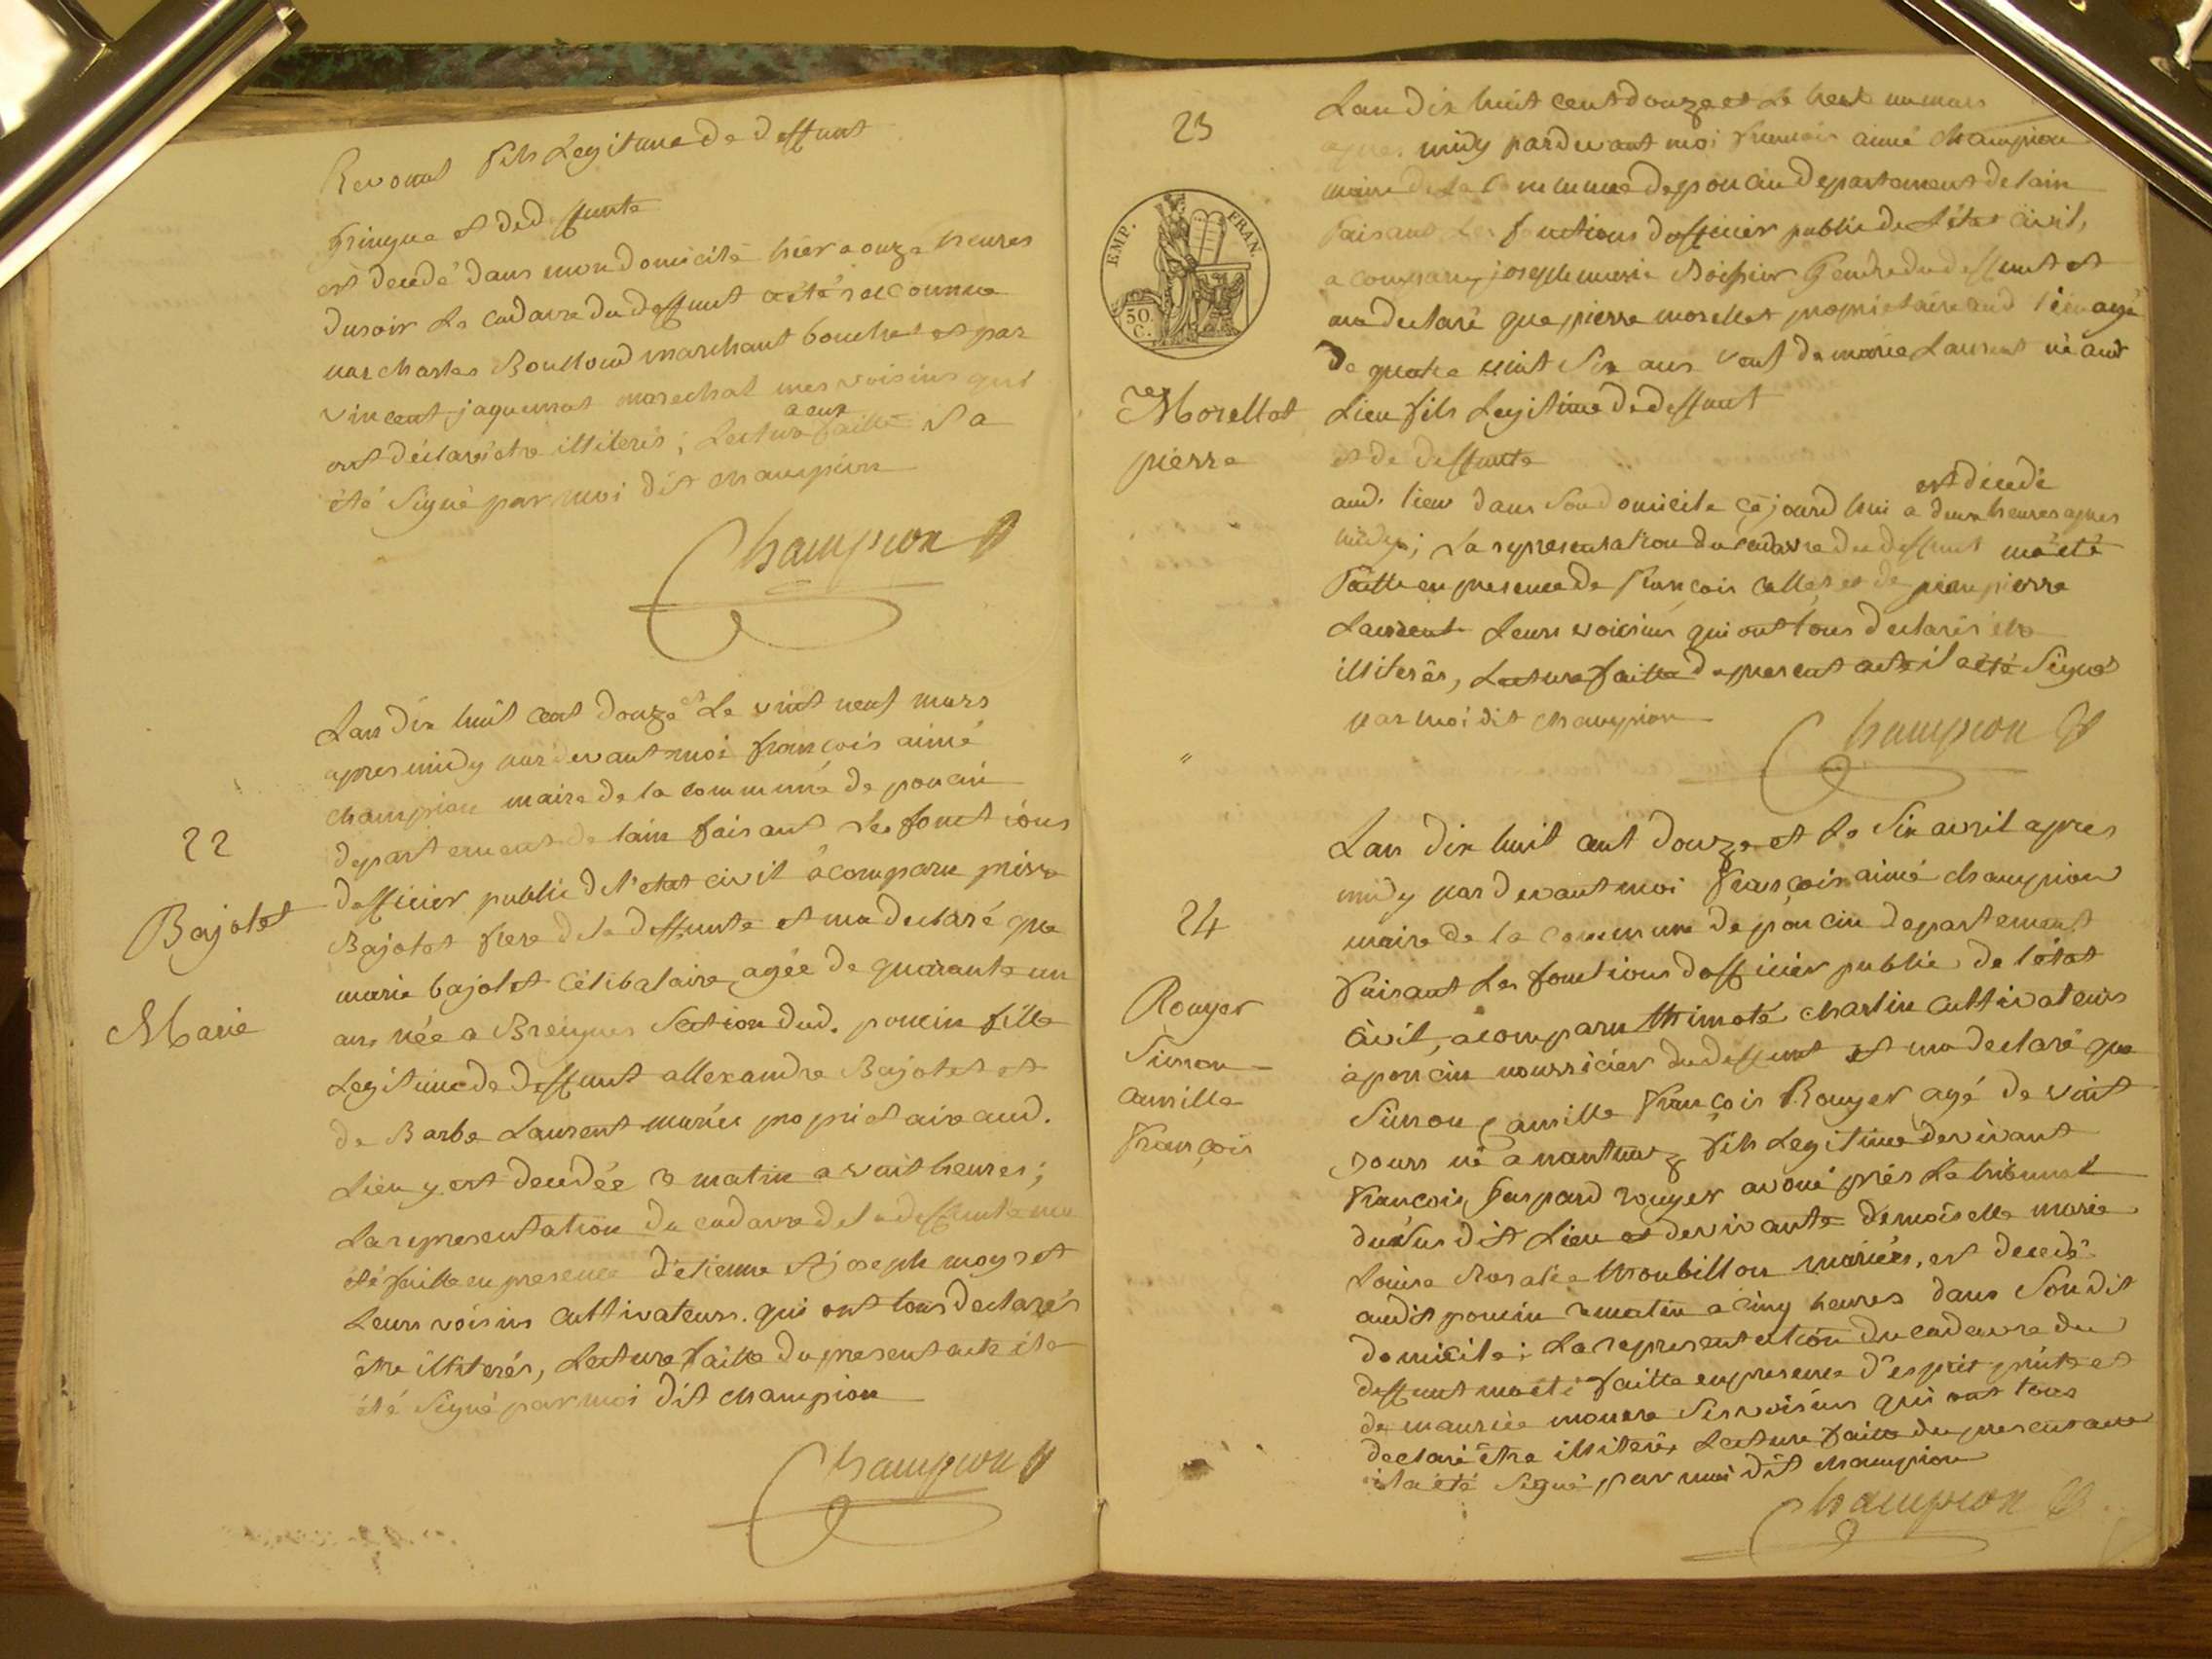 Revonat fils Légitime de deffunt
et de deffunte
est decedé dans mon domicile hier a onze heures
du soir le cadavre du deffunt a été reconnue
par charles Boulloud marchant boucher et par
vincent jaquemot marechal mes voisins qui
ont déclaré être illiterés; Lecture a eux faitte il a
été Signé par moi dit champion
Champion
22
Bajolet
Marie
Lan dix huit cent douze et Le vint neuf mars
apres midy par devant moi françois aimé
champion maire de la commune de poncin
departement de lain faisant Les fonctions
dofficier public de l'etat civil a comparu pierre
Bajolet frere de la deffunte et ma declaré que
marie bajolet célibataire agée de quarante un
ans née a Breignes Section dud. poncin fille
Legitime de deffunt allexandre Bajolet et
de Barbe Laurent mariés proprietaire aud.
Lieu y est decedée ce matin a vuit heures;
La representation du cadavre de la deffunte ma
été faitte en presence d'etienne et joseph moyret
Leurs voisins cultivateurs. qui ont tous declarés
être illiterés, Lecture faitte du present acte il a
été Signé par moi dit champion
Champion
23
EMP. FRAN.
50. C.
Morellet
pierre
Lan dix huit cent douze et Le trente un mars
apres midy pardevant moi francois aimé champion
maire de La Commune de poncin departement de lain
faisant Les fonctions dofficier public de L'état Civil,
a comparu joseph marie Boissier Gendre du deffunt et
ma declaré que pierre morellet propriétaire aud lieu agé
de quatre vint Six ans veuf de marie Laurent né aud
Lieu fils Legitime de deffunt
et de deffunte
est décédé
aud. lieu dans Son domicile cejourdhui a deux heures apres
midy; La representation du cadavre du deffunt ma été
faitte en presence de françois callet et de jean pierre
Laurent Leurs voisins qui ont tous declarés etre
illiterés, Lecture faitte de present acte il a été Signé
par moi dit champion
Champion
24
Rouyer
Simon
Camille
François
Lan dix huit cent douze et Le Six avril apres
midy par devant moi françois aimé champion
maire de la commune de poncin departement
faisant Les fonctions dofficier public de l'état
Civil, a comparu thimoté charlin cultivateurs
a poncin nourricier du deffunt et ma declaré que
Simon Camille François Rouyer agé de vint
jours né a nantua fils Legitime de vivant
francois Gaspard rouyer avoué prés Le tribunal
du Sus dit Lieu et de vivante demoiselle marie
Louise Rosalie Moubillon mariés, est decedé
audit poncin ce matin a cinq heures dans Son dit
domicile; La representation du cadavre du
deffunt ma été faitte en presence d'esprit et
de maurice Ses voisins qui ont tous
declaré être illiterés Lecture faitte du present acte
il a été Signé par moi dit champion
Champion